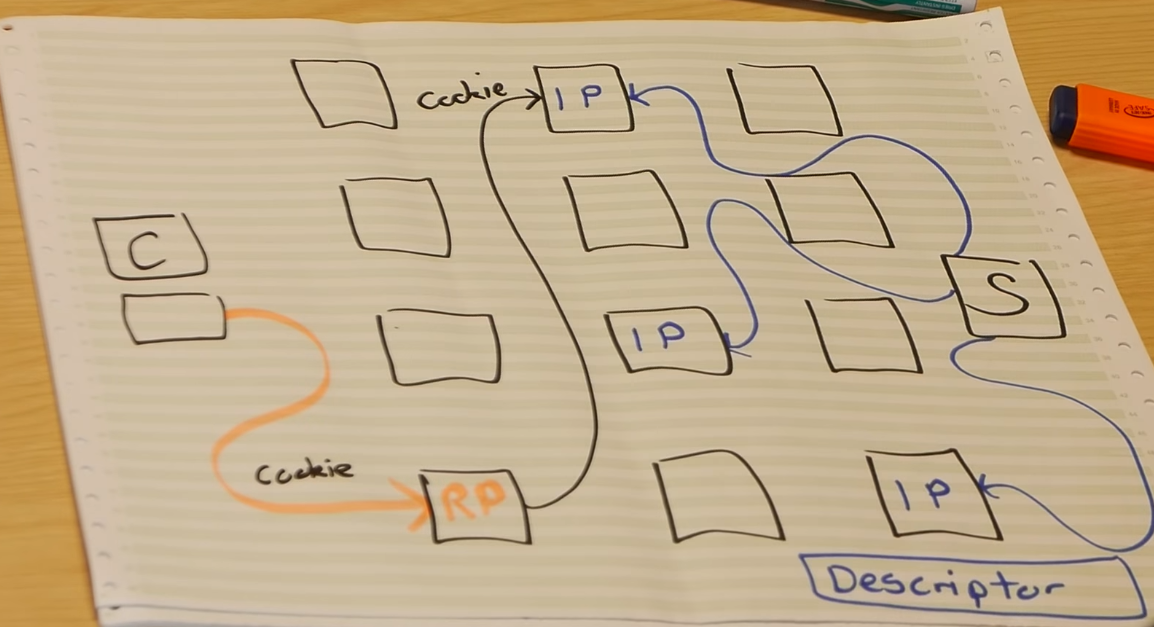 cookie
IP
C
S
IP
cookie
RP
IP
Descriptor